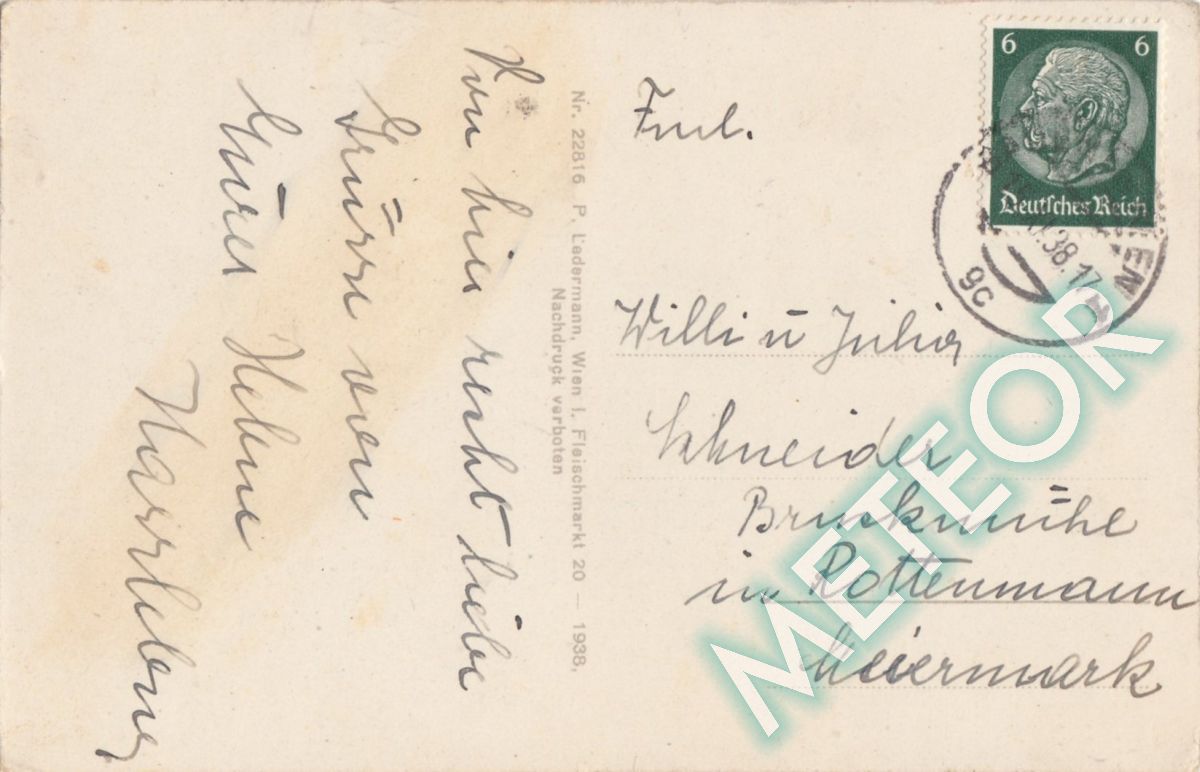 Von hier recht liebe
Grüsse von
Eurer Helene
Nr. 22816 P. Ledermann, Wien I. Fleischmarkt 20 — 1938,
Nachdruck verboten
6 6
Deutsches Reich
38.17
9c
Willi u Julia
Schneider
Bruckmühe
in Rottenmann
Steiermark
METEOR